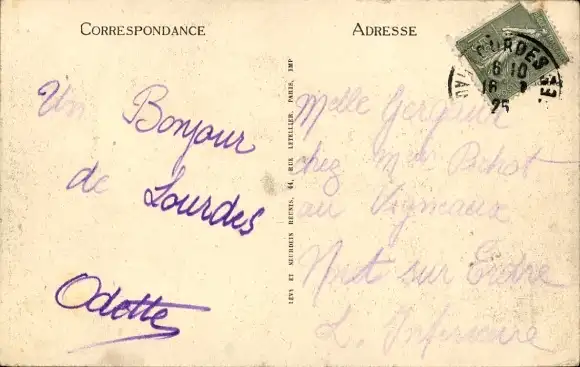 CORRESPONDANCE
ADRESSE
LOURDES
16 10
16
25
Un Bonjour
de Lourdes
Odette
LÉVY ET NEURDEIN RÉUNIS, 44, RUE LETELLIER, PARIS, IMP
Melle
chez Mme
au Vigneaux
Nort sur Erdre
L. Inférieure